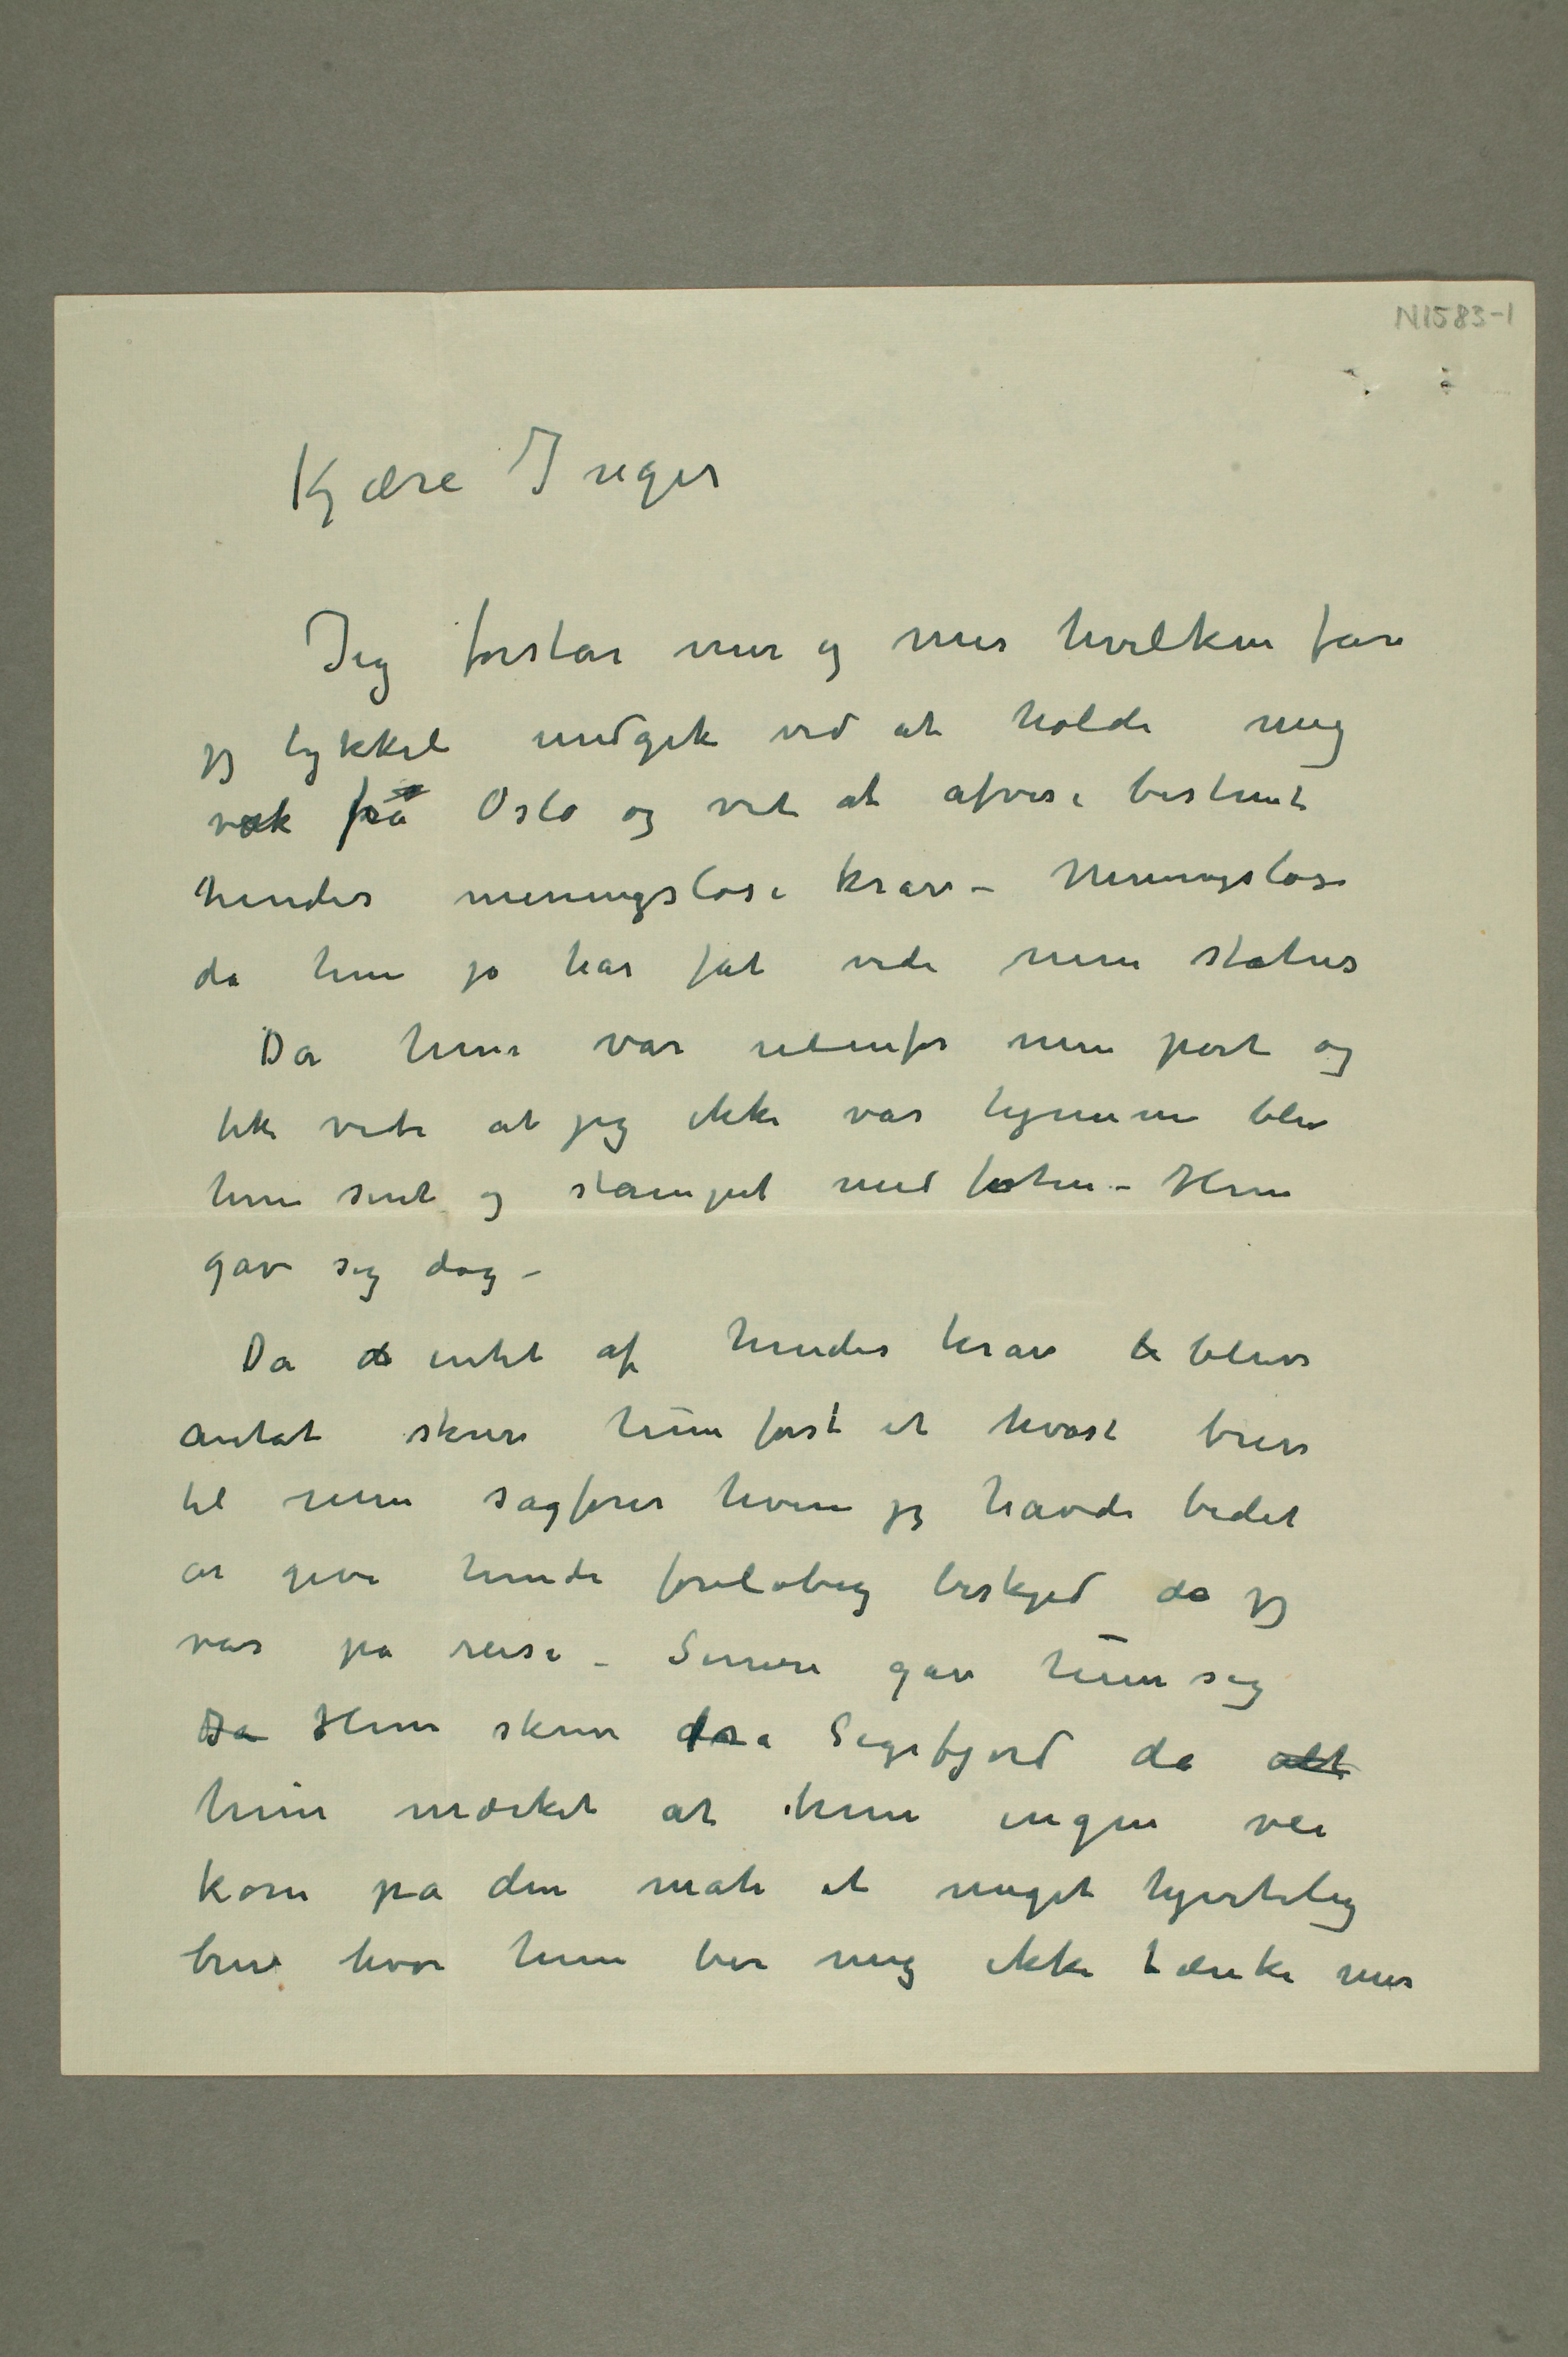 N1583-1
Kjære Inger
Jeg forstår mer og mer hvilken fare
jeg lykkel undgik ved at holde mig
væk frå Oslo og vet at afvise bestemt
hendes meningsløse krav – Meningsløse
da hun jo har fåt vide min status
Da hun var utenfor min port og
fik vite at jeg ikke var hjemme blev
hun sint og stampet med foten – Hun
gav sig dog –
Da intet af hendes krav blev
antat skrev hun først et hvast brev
til min sagfører hvem jeg havde bedet
at give hende foreløbig beskjed da jeg
var på reise – Senere gav hun sig
Da Hun skrev fra Sigefjord da alt
hun mærket at hun ingen vei
kom på den måte et meget hjertelig
brev hvor hun ber mig ikke tænke mer